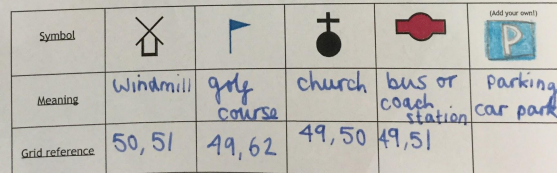 Symbol
(Add your own!)
P
Meaning
windmill
golf
course
church
bus or
coach
station
parking
car park
Grid reference
50, 51
49, 62
49, 50
49, 51